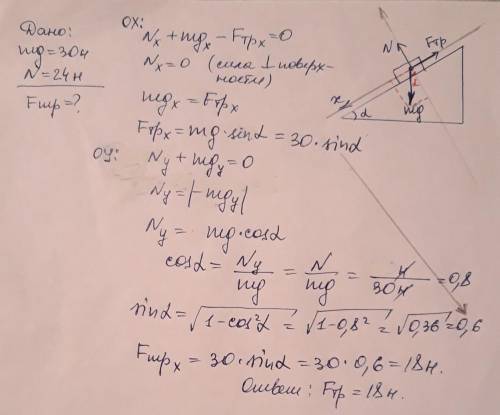 Дано:
mg = 30н
N = 24н
Fтр = ?
OX:
Nₓ + mgₓ − Fтрₓ = 0
Nₓ = 0 (сила ⊥ поверх-
ности)
mgₓ = Fтрₓ
Fтрₓ = mg · sinα = 30 · sinα
OY:
Ny + mgy = 0
Ny = |−mgy|
Ny = mg · cosα
cosα = Ny/mg = N/mg = н/30н = 0,8
sinα = √(1−cos²α) = √(1−0,8²) = √0,36 = 0,6
Fтрₓ = 30 · sinα = 30 · 0,6 = 18н.
Ответ: Fтр = 18н.
N
Fтр
x
α
mg